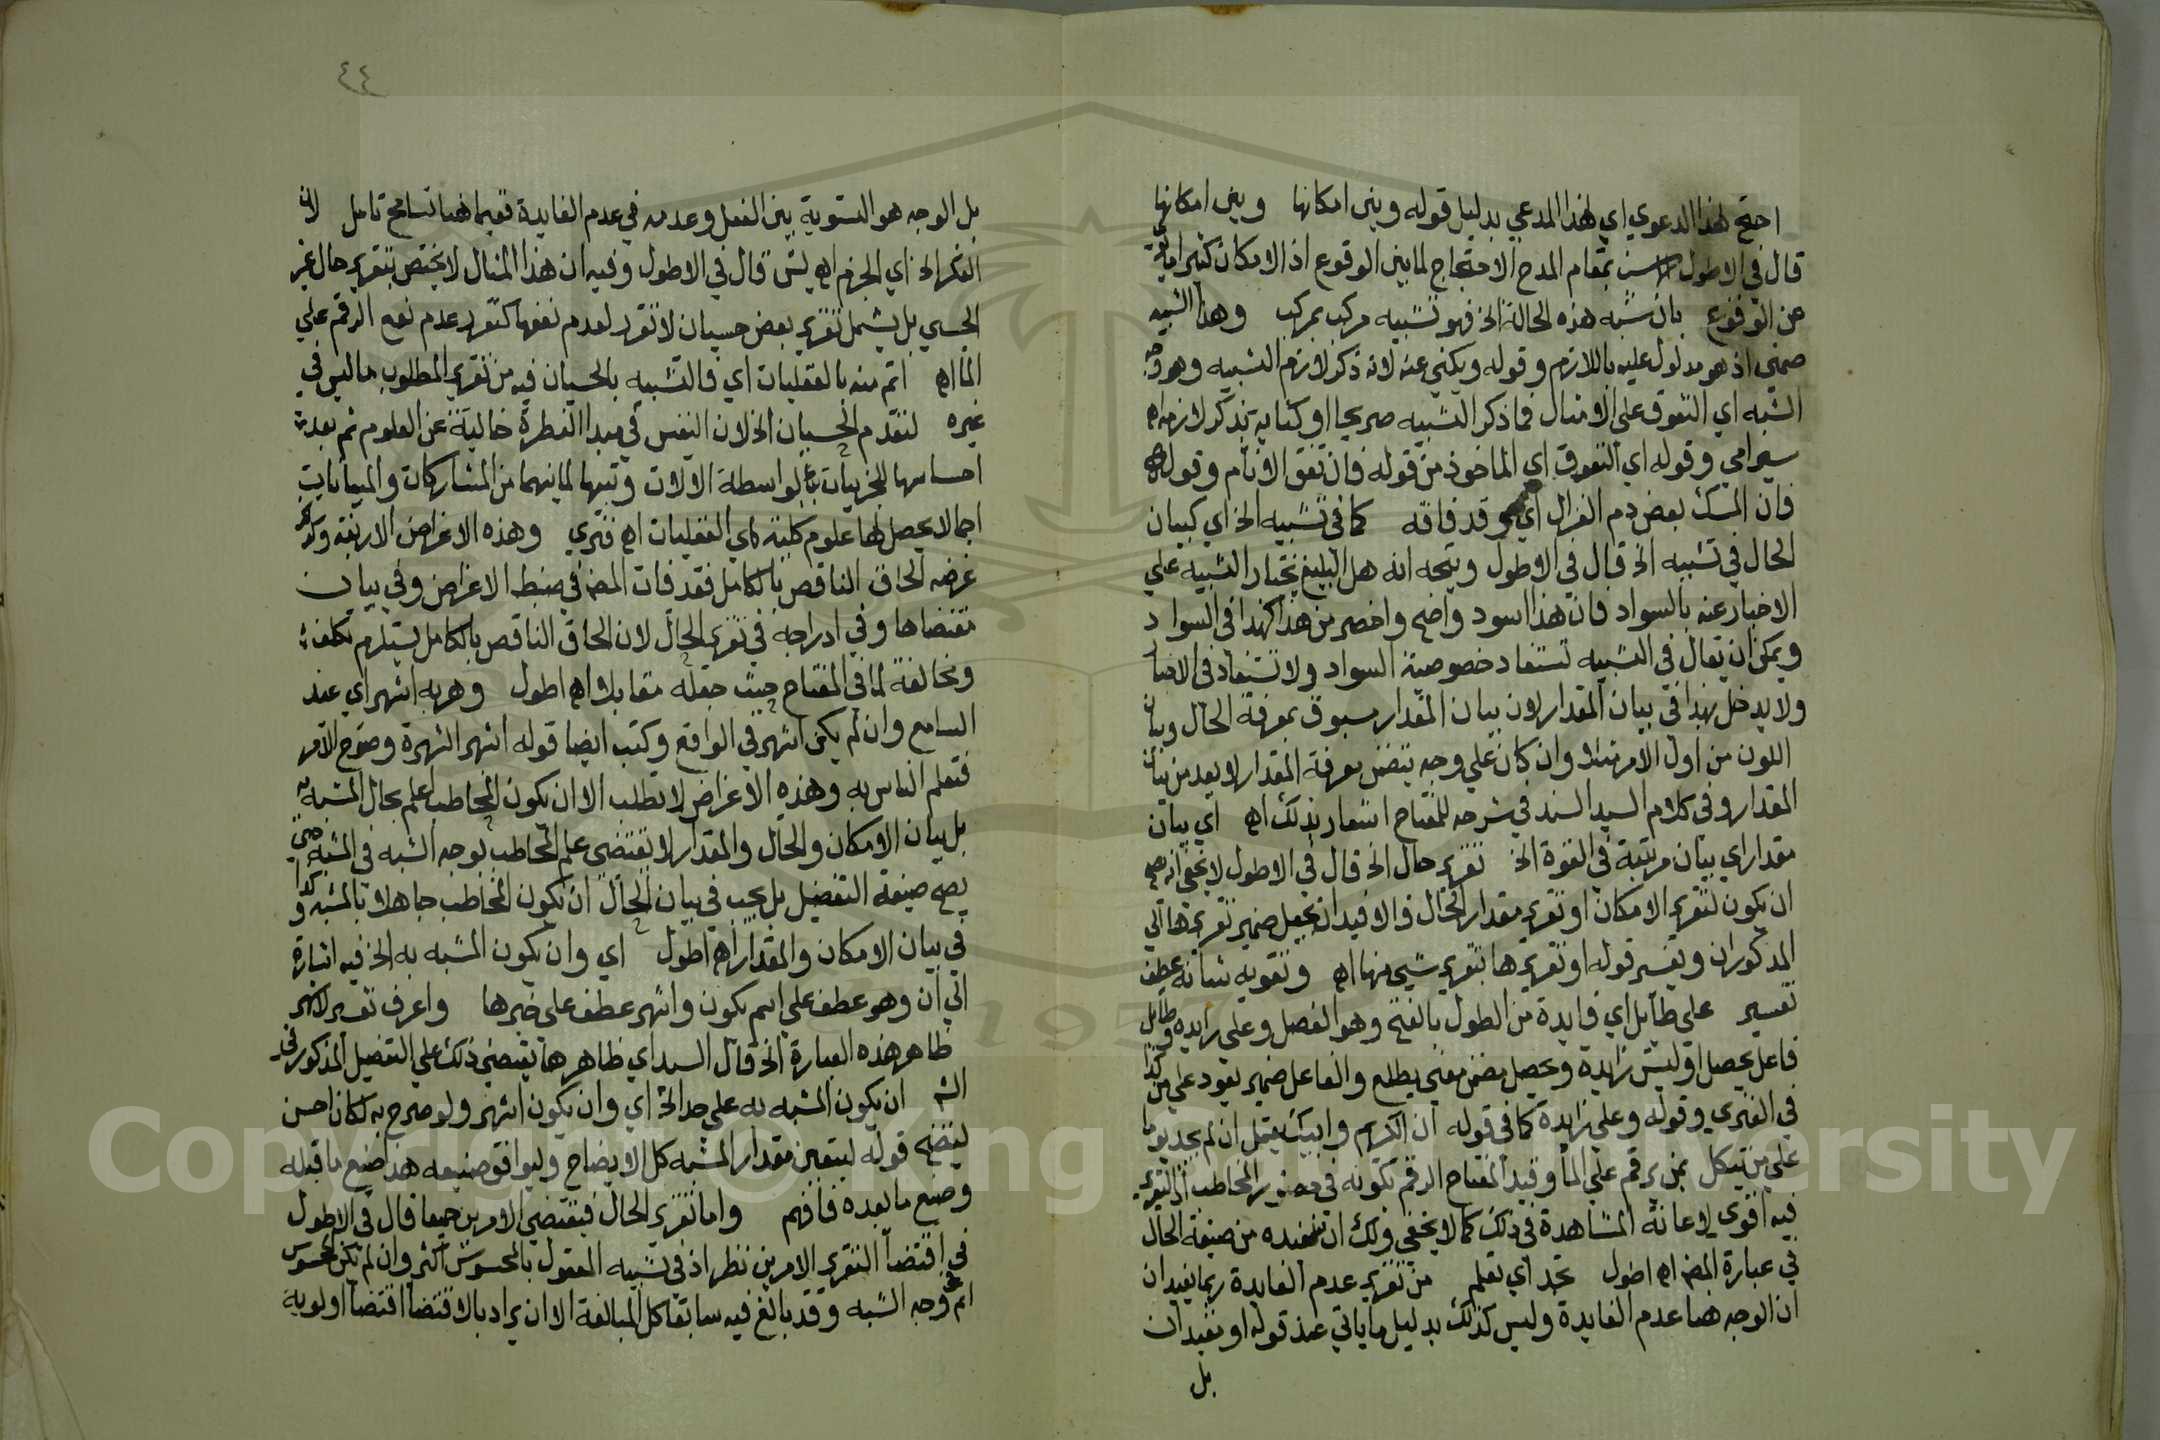 احتج لهذا الدعوي اي لهذا المدعي بدليل قوله وبين امكانها وبين امكانها
قال في الاطول بمقام المدح الاحتجاج لما بين الوقوع اذ الامكان كثير
عن الوقوع بان شبه هذه الحالة الخ فهو تشبيه مركب بمركب وهذا التشبيه
ضمني اذ هو مدلول عليه باللازم وقوله ويكني عنه لانه ذكر لازم التشبيه وهو وجه
الشبه اي التفوق علي الامثال فما ذكر التشبيه صريحا او كناية بذكر لازمه اه
سيرامي وقوله اي التفوق اي الماخوذ من قوله فان تفق الانام وقوله
فان المسك بعض دم الغزال اي وقد فاقه كما في تشبيه الخ اي كبيان
الحال في تشبيه الخ قال في الاطول ويتجه انه هل البليغ يختار التشبيه علي
الاخبار عنه بالسواد فان هذا اسود واضح واخصر من هذا كهذا في السواد
ويمكن ان يقال في التشبيه تستفاد خصوصية السواد ولا تستفاد في الاخبار
ولا يدخل بهذا في بيان المقدار لان بيان المقدار مسبوق بمعرفة الحال وبيان
اللون من اول الامر مثلا وان كان علي وجه يتضمن معرفة المقدار لا يعد من بيان
المقدار وفي كلام السيد السند في شرحه للمفتاح اشعار بذلك اه اي بيان
مقدار اي بيان مرتبة في القوة الخ تقرير حال الخ قال في الاطول لا يخفي انه يصح
ان يكون لتقرير الامكان او تقرير مقدار الحال فالافيد ان يجعل ضمير تقريرها الي
المذكوران ويفسر قوله او تقريرها بتقرير شي منها اه وتقوية شانه عطف
تفسير علي طايل اي فايدة من الطول بالفتح وهو الفضل وعلي زايده وطايل
فاعل يحصل او ليس زايدة ويحصل مضمن معني يطلع والفاعل ضمير يعود علي من كذا
في الفنري وقوله وعلي زايدة كما في قوله ان الكريم وابيك يعتمل ان لم يجد يوما
علي من يتكل بمن يرقم علي الما وقيد المفتاح الرقم بكونه في حضور المخاطب اذ التقرير
فيه اقوي لاعانة المشاهدة في ذلك كما لا يخفي ولك ان تستفيده من صيغة الحال
في عبارة المص اه اطول تجد اي تعلم من تقرير عدم الفايدة ربما يفيد ان
ان الوجه هنا عدم الفايدة وليس كذلك بدليل ما ياتي عند قوله او يفيد ان
بل
٤٤
بل الوجه هو التسوية بين الفعل وعدمه في عدم الفايدة ففيما هنا تسامح تامل لان
الفكر الخ اي الجزم اه يس قال في الاطول وفيه ان هذا المثال لا يختص بتقرير حال غير
الحسي بل يشمل تقرير بعض حسيان لا تقرر لعدم نفعها كتقرر عدم نفع الرقم علي
الما اه اتم منه بالعقليات اي فالتشبيه بالحسيان فيه من تقرير المطلوب ما ليس في
غيره لتقدم الحسيان الخ لان النفس في مبدا الفطرة خالية عن العلوم ثم بعد
احساسها للجزييات بواسطة الالات وتنبهها لما بينهما من المشاركات والمباينات
اجمالا يحصل لها علوم كلية هي العقليات اه فنري وهذه الاغراض الاربعة
غرضه الحاق الناقص بالكامل فقد فات المص في ضبط الاغراض وفي بيان
مقتضاها وفي ادراجه في تقرير الحال لان الحاق الناقص بالكامل يستلزم تكلف
ومخالفة لما في المفتاح حيث جعله مقابلا اه اطول وهو به اشهر اي عند
السامع وان لم يكن اشهر في الواقع وكتب ايضا قوله اشهر الشهرة وضوح الامر
فتعلم الناس به وهذه الاغراض لا تطلب الا ان يكون المخاطب اعلم بحال المشبه به
بل بيان الامكان والحال والمقدار لا تقتضي علم المخاطب بوجه الشبه في المشبه حتي
يصح صيغة التفضيل بل يجب في بيان الحال ان يكون المخاطب جاهلا بالمشبه وكذا
في بيان الامكان والمقدار اه اطول اي وان يكون المشبه به الخ فيه اشارة
الي ان وهو عطف علي اسم يكون واشهر عطف علي خبرها واعرف تفسير لاشهر
ظاهر هذه العبارة الخ قال السيد اي ظاهرها يقتضي ذلك علي التفصيل المذكور في
الش ان يكون المشبه به علي حد الخ اي وان يكون اشهر ولو صرح به لكان احسن
ليتضح قوله ليتعين مقدار المشبه كل الايضاح وليوافق صنيعه هذا صنيع ما قبله
وصنع ما بعده فافهم واما تقرير الحال فيقتضي الامرين جميعا قال في الاطول
في اقتضا التقرير الامرين نظر اذ في تشبيه المعقول بالمحسوس اكثر وان لم يكن المحسوس
اتم في وجه الشبه وقد بالغ فيه سابقا كل المبالغة الا ان يراد بالاقتضا اقتضا اولوية